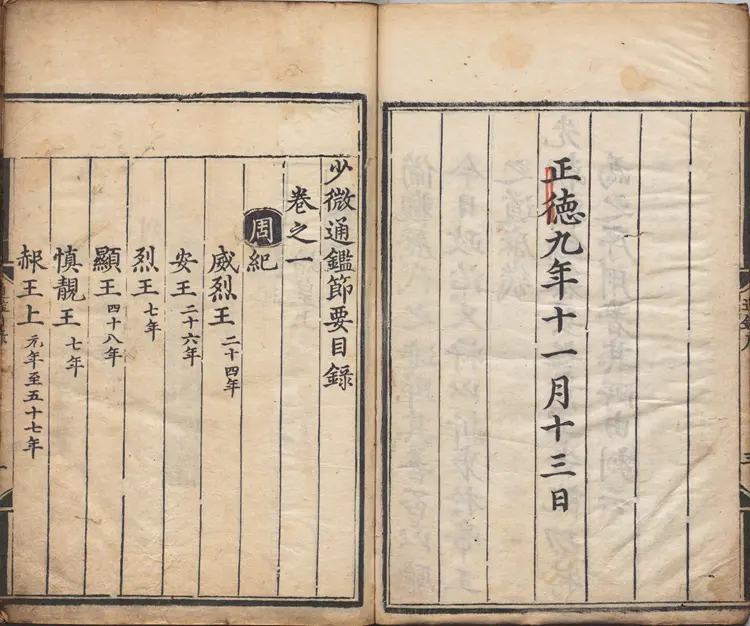 正德九年十一月十三日
少微通鑑節要目錄
卷之一
周紀
威烈王 二十四年
安王 二十六年
烈王 七年
顯王 四十八年
慎靚王 七年
赧王上 元年至五十七年